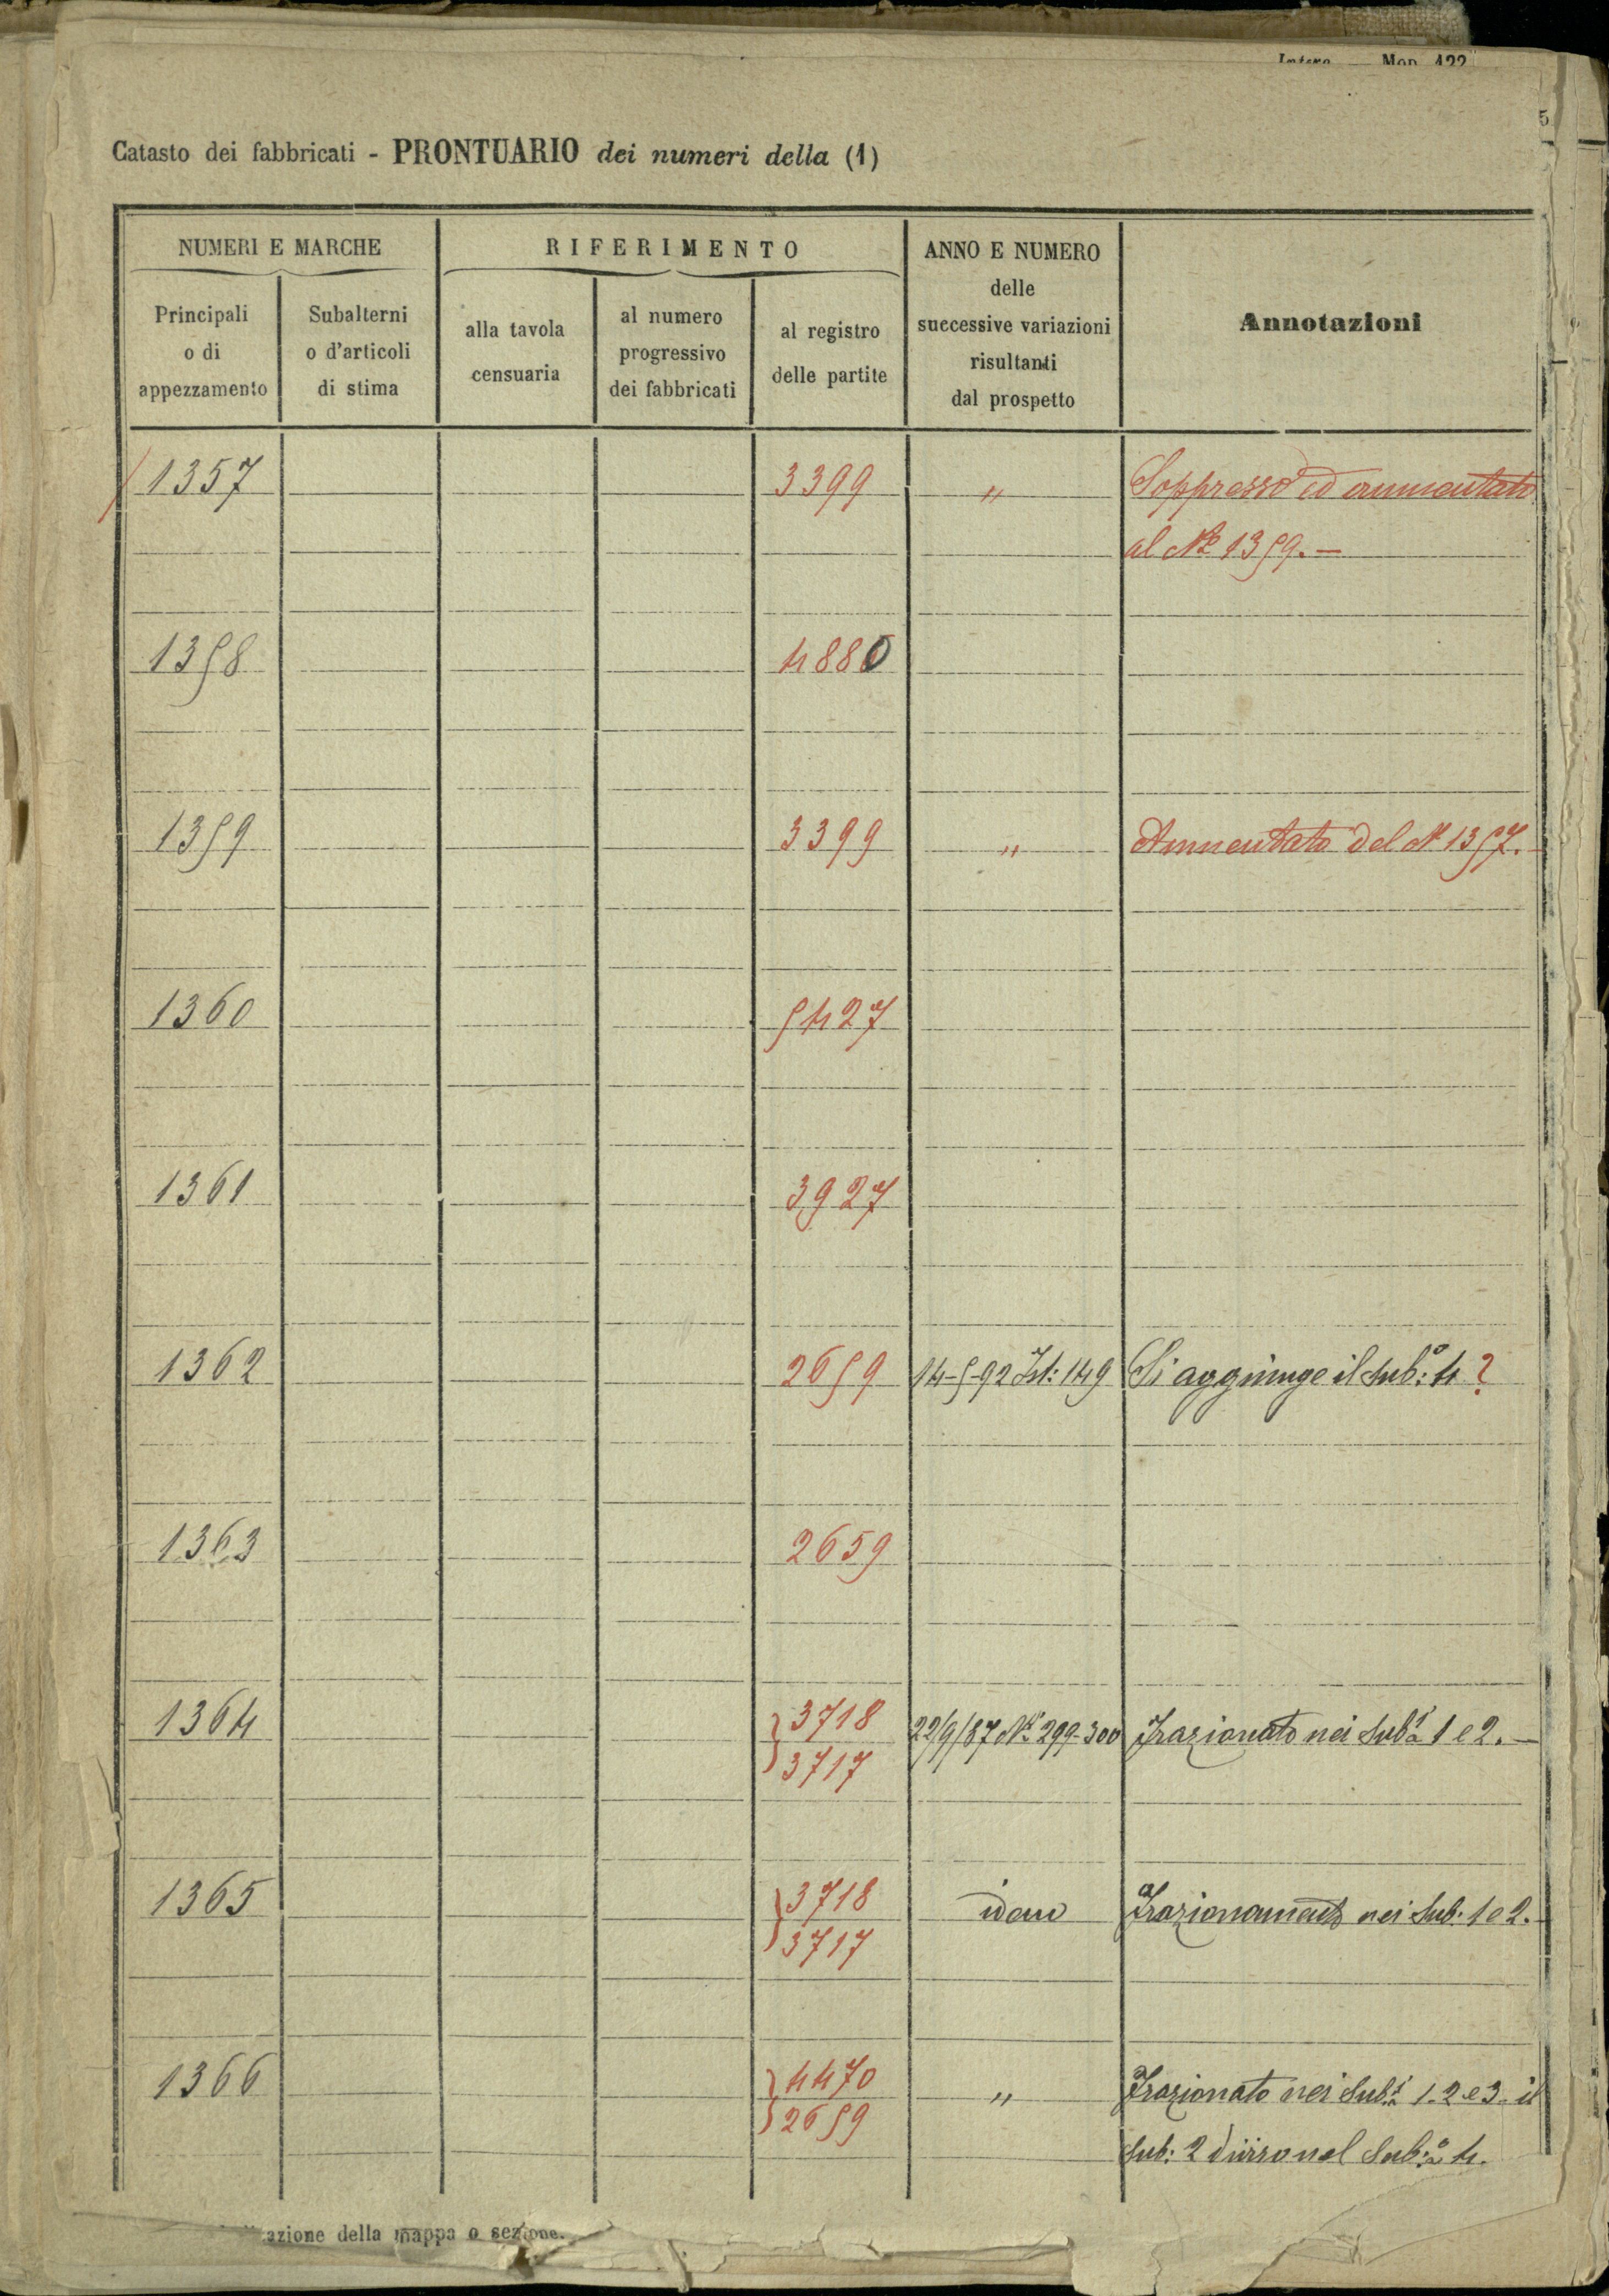 Mod. 422
5
Catasto dei fabbricati - PRONTUARIO dei numeri della (1)
NUMERI E MARCHE
RIFERIMENTO
ANNO E NUMERO
delle
successive variazioni
risultanti
dal prospetto
Annotazioni
Principali
o di
appezzamento
Subalterni
o d'articoli
di stima
alla tavola
censuaria
al numero
progressivo
dei fabbricati
al registro
delle partite
1357 3399 " Soppresso ed aumentato
al N.° 1359.-
1358 4880
1359 3399 " Aumentato del N 1357.
1360 5427
1361 3927
1362 2659 14-5-92 Ist: 149 Si aggiunge il sub:° 4 ?
1363 2659
1364 3718 22/9/87 N.i 299-300 Frazionato nei sub.i 1 e 2.-
3717
1365 3718 idem Frazionamento nei sub. 1 e 2.
3717
1366 4470 " Frazionato nei sub.i 1. 2 e 3. il
2659
sub: 2 diviso nel sub:° 4.
azione della mappa o sezione.